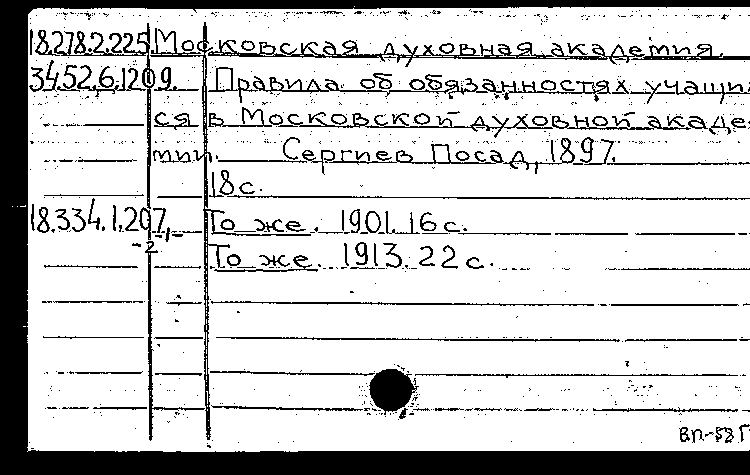 18.278.2.225 Московская духовная академия.
34.52.6.1209. Правила об обязанностях учащи
ся в Московской духовной акаде
мии. Сергиев Посад, 1897.
18 с.
18.334.1.207,-1,- То же. 1901. 16 с.
-2 То же. 1913. 22 с.
вп-58 Г